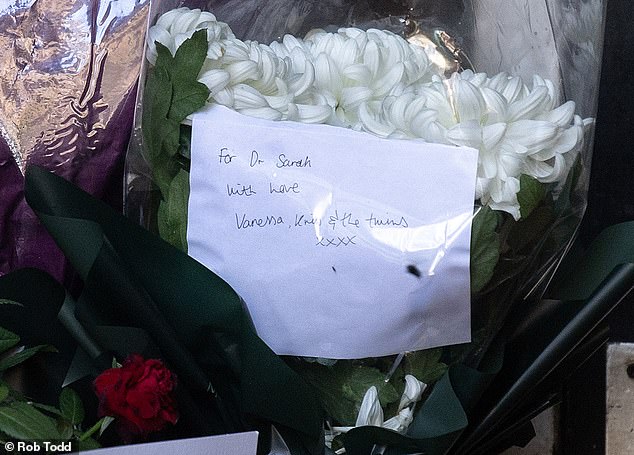 For Dr Sarah
with Love
Vanessa, Kris & the twins
xxxx
© Rob Todd